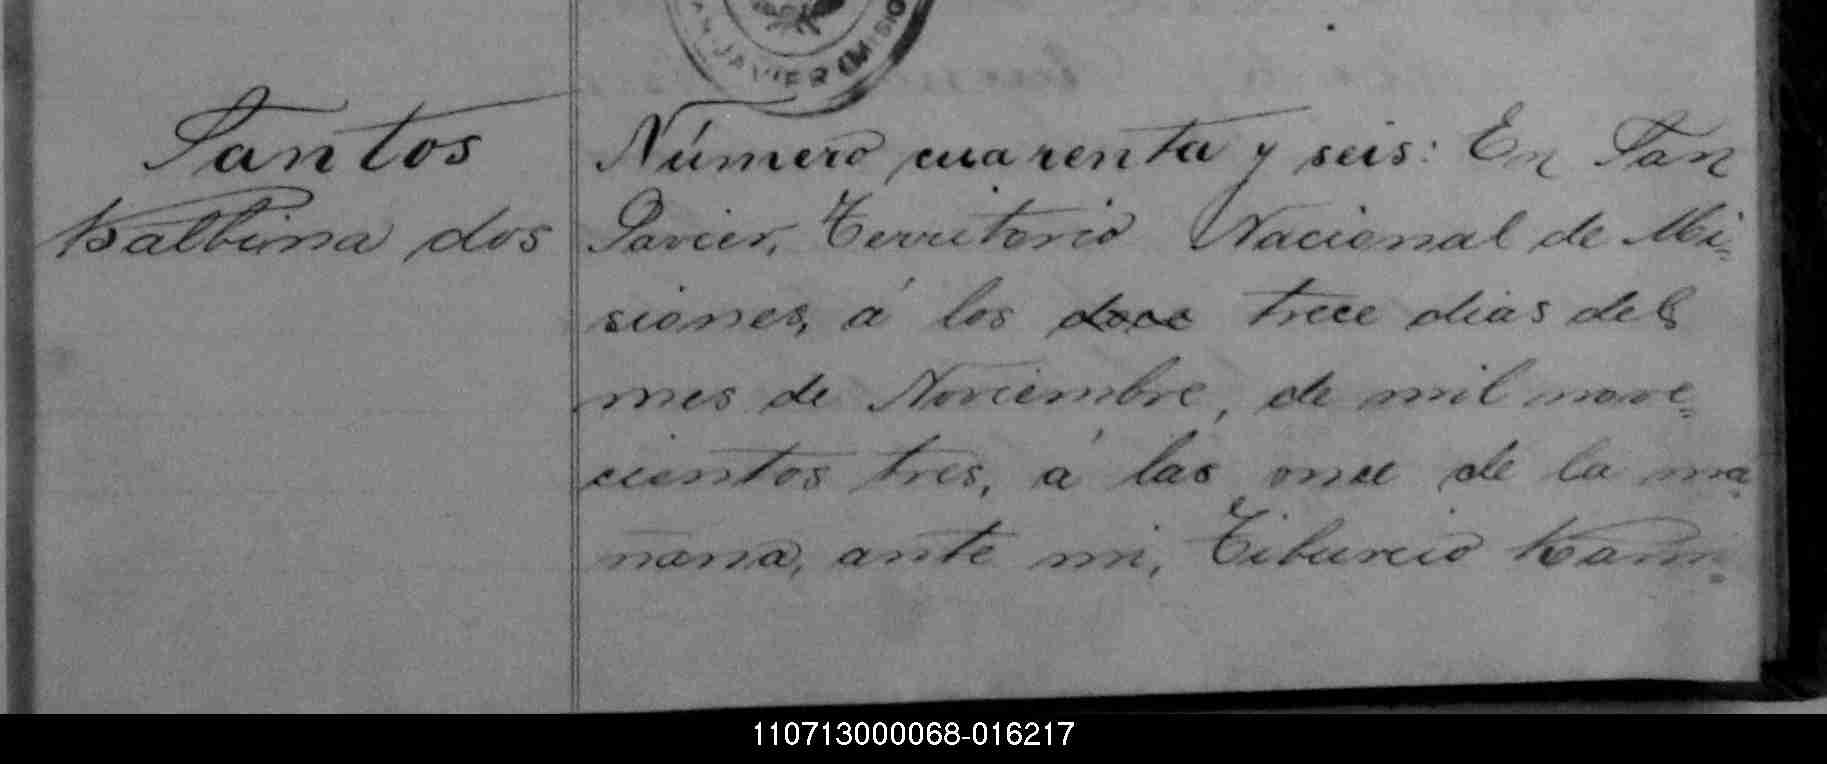 SAN JAVIER (MISIO
Santos
Balbina dos
Número cuarenta y seis: En San
Javier, Territorio Nacional de Mi=
siones, á los doce trece dias del
mes de Noviembre, de mil nove=
cientos tres, á las once de la ma
ñana, ante mi, Tiburcio
110713000068-016217